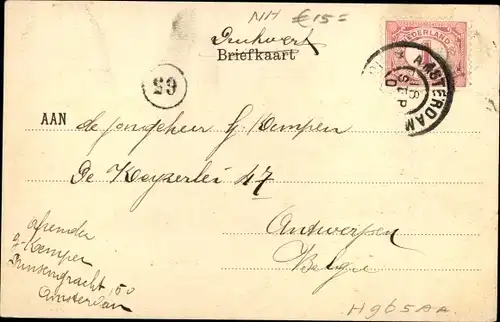 NH €15=
Drukwerk
Briefkaart
NEDERLAND
AMSTERDAM
18
SEP
10
63
AAN de jongeheer G. Kempen
De Keyzerlei 47
Antwerpen
Belgie
afzender
G. Kemper
Prinsengracht 150
Amsterdam
H965AA